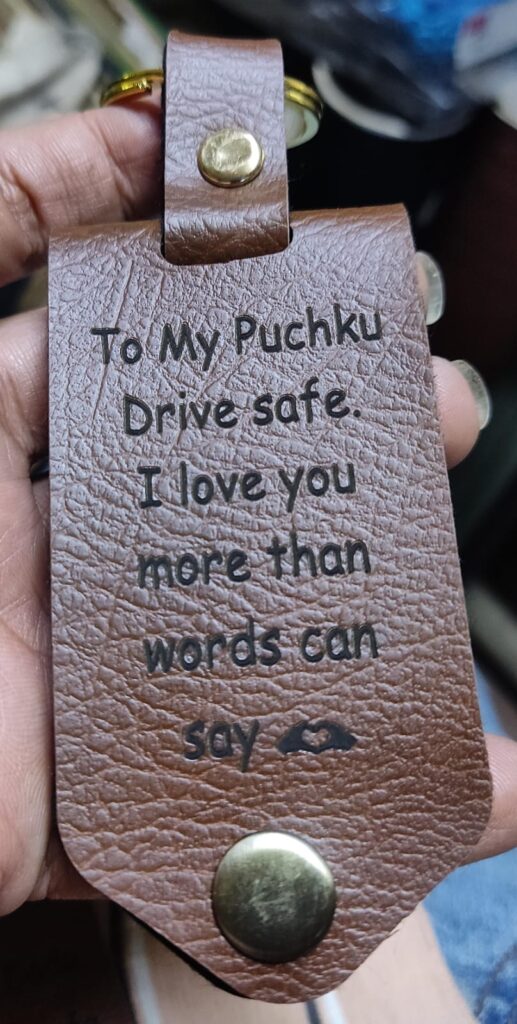 To My Puchku
Drive safe.
I love you
more than
words can
say